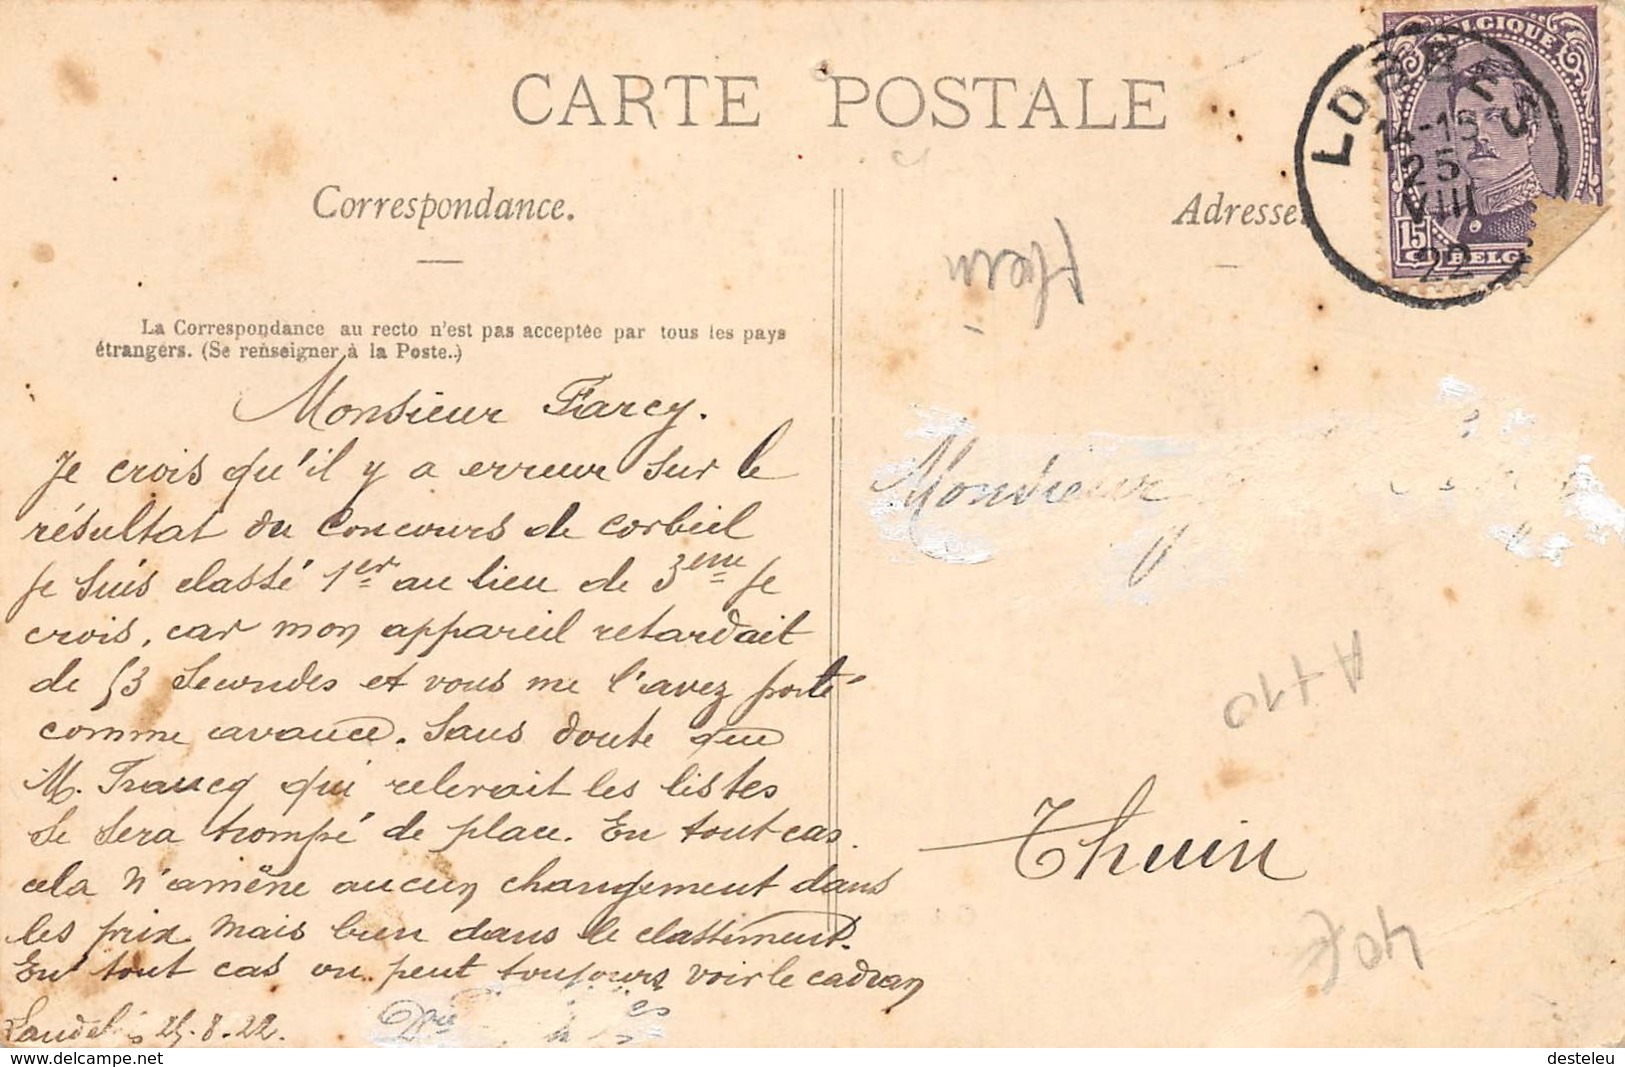 CARTE POSTALE
Correspondance.
La Correspondance au recto n'est pas acceptée par tous les pays
étrangers. (Se renseigner à la Poste.)
Monsieur Farcy.
Je crois qu'il y a erreur sur le
résultat du Concours de Corbeil
Je suis classé 1er au lieu de 3eme je
crois, car mon appareil retardait
de 53 secondes et vous me l'avez porté
comme avance. Sans doute que
M. Francq qui relevait les listes
se sera trompé de place. En tout cas
cela n'amène aucun changement dans
les prix mais bien dans le classement.
En tout cas on peut toujours voir le cadran
25.8.22.
Adresse.
BELGIQUE
15 C BELG
LOBBES
14-15
25
VIII
22
thuin
Monsieur
A 110
Thuin
40F
desteleu